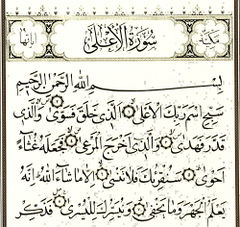 مكية سورة الأعلى آياتها
بسم الله الرحمن الرحيم
سبح اسم ربك الأعلى الذى خلق فسوى والذى
قدر فهدى والذى أخرج المرعى فجعله غثاء
أحوى سنقرئك فلا تنسى إلا ما شاء الله إنه
يعلم الجهر وما يخفى ونيسرك لليسرى فذكر